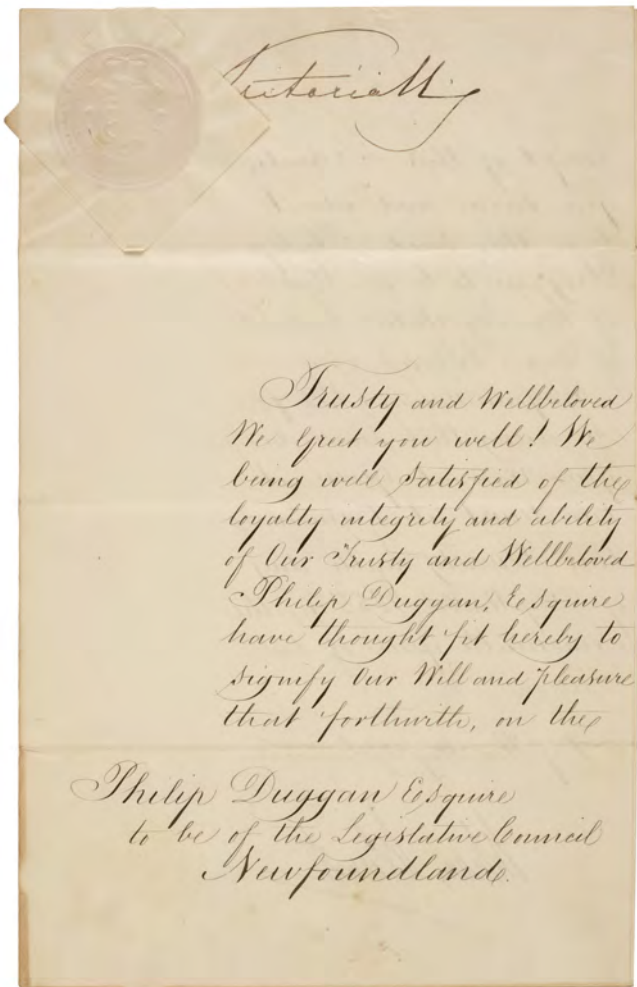 Victoria R
Trusty and Wellbeloved
We Greet you well! We
being well Satisfied of the
loyalty integrity and ability
of Our Trusty and Wellbeloved
Philip Duggan, Esquire
have thought fit hereby to
signify Our Will and pleasure
that forthwith, on the
Philip Duggan Esquire
to be of the Legislative Council
Newfoundland.